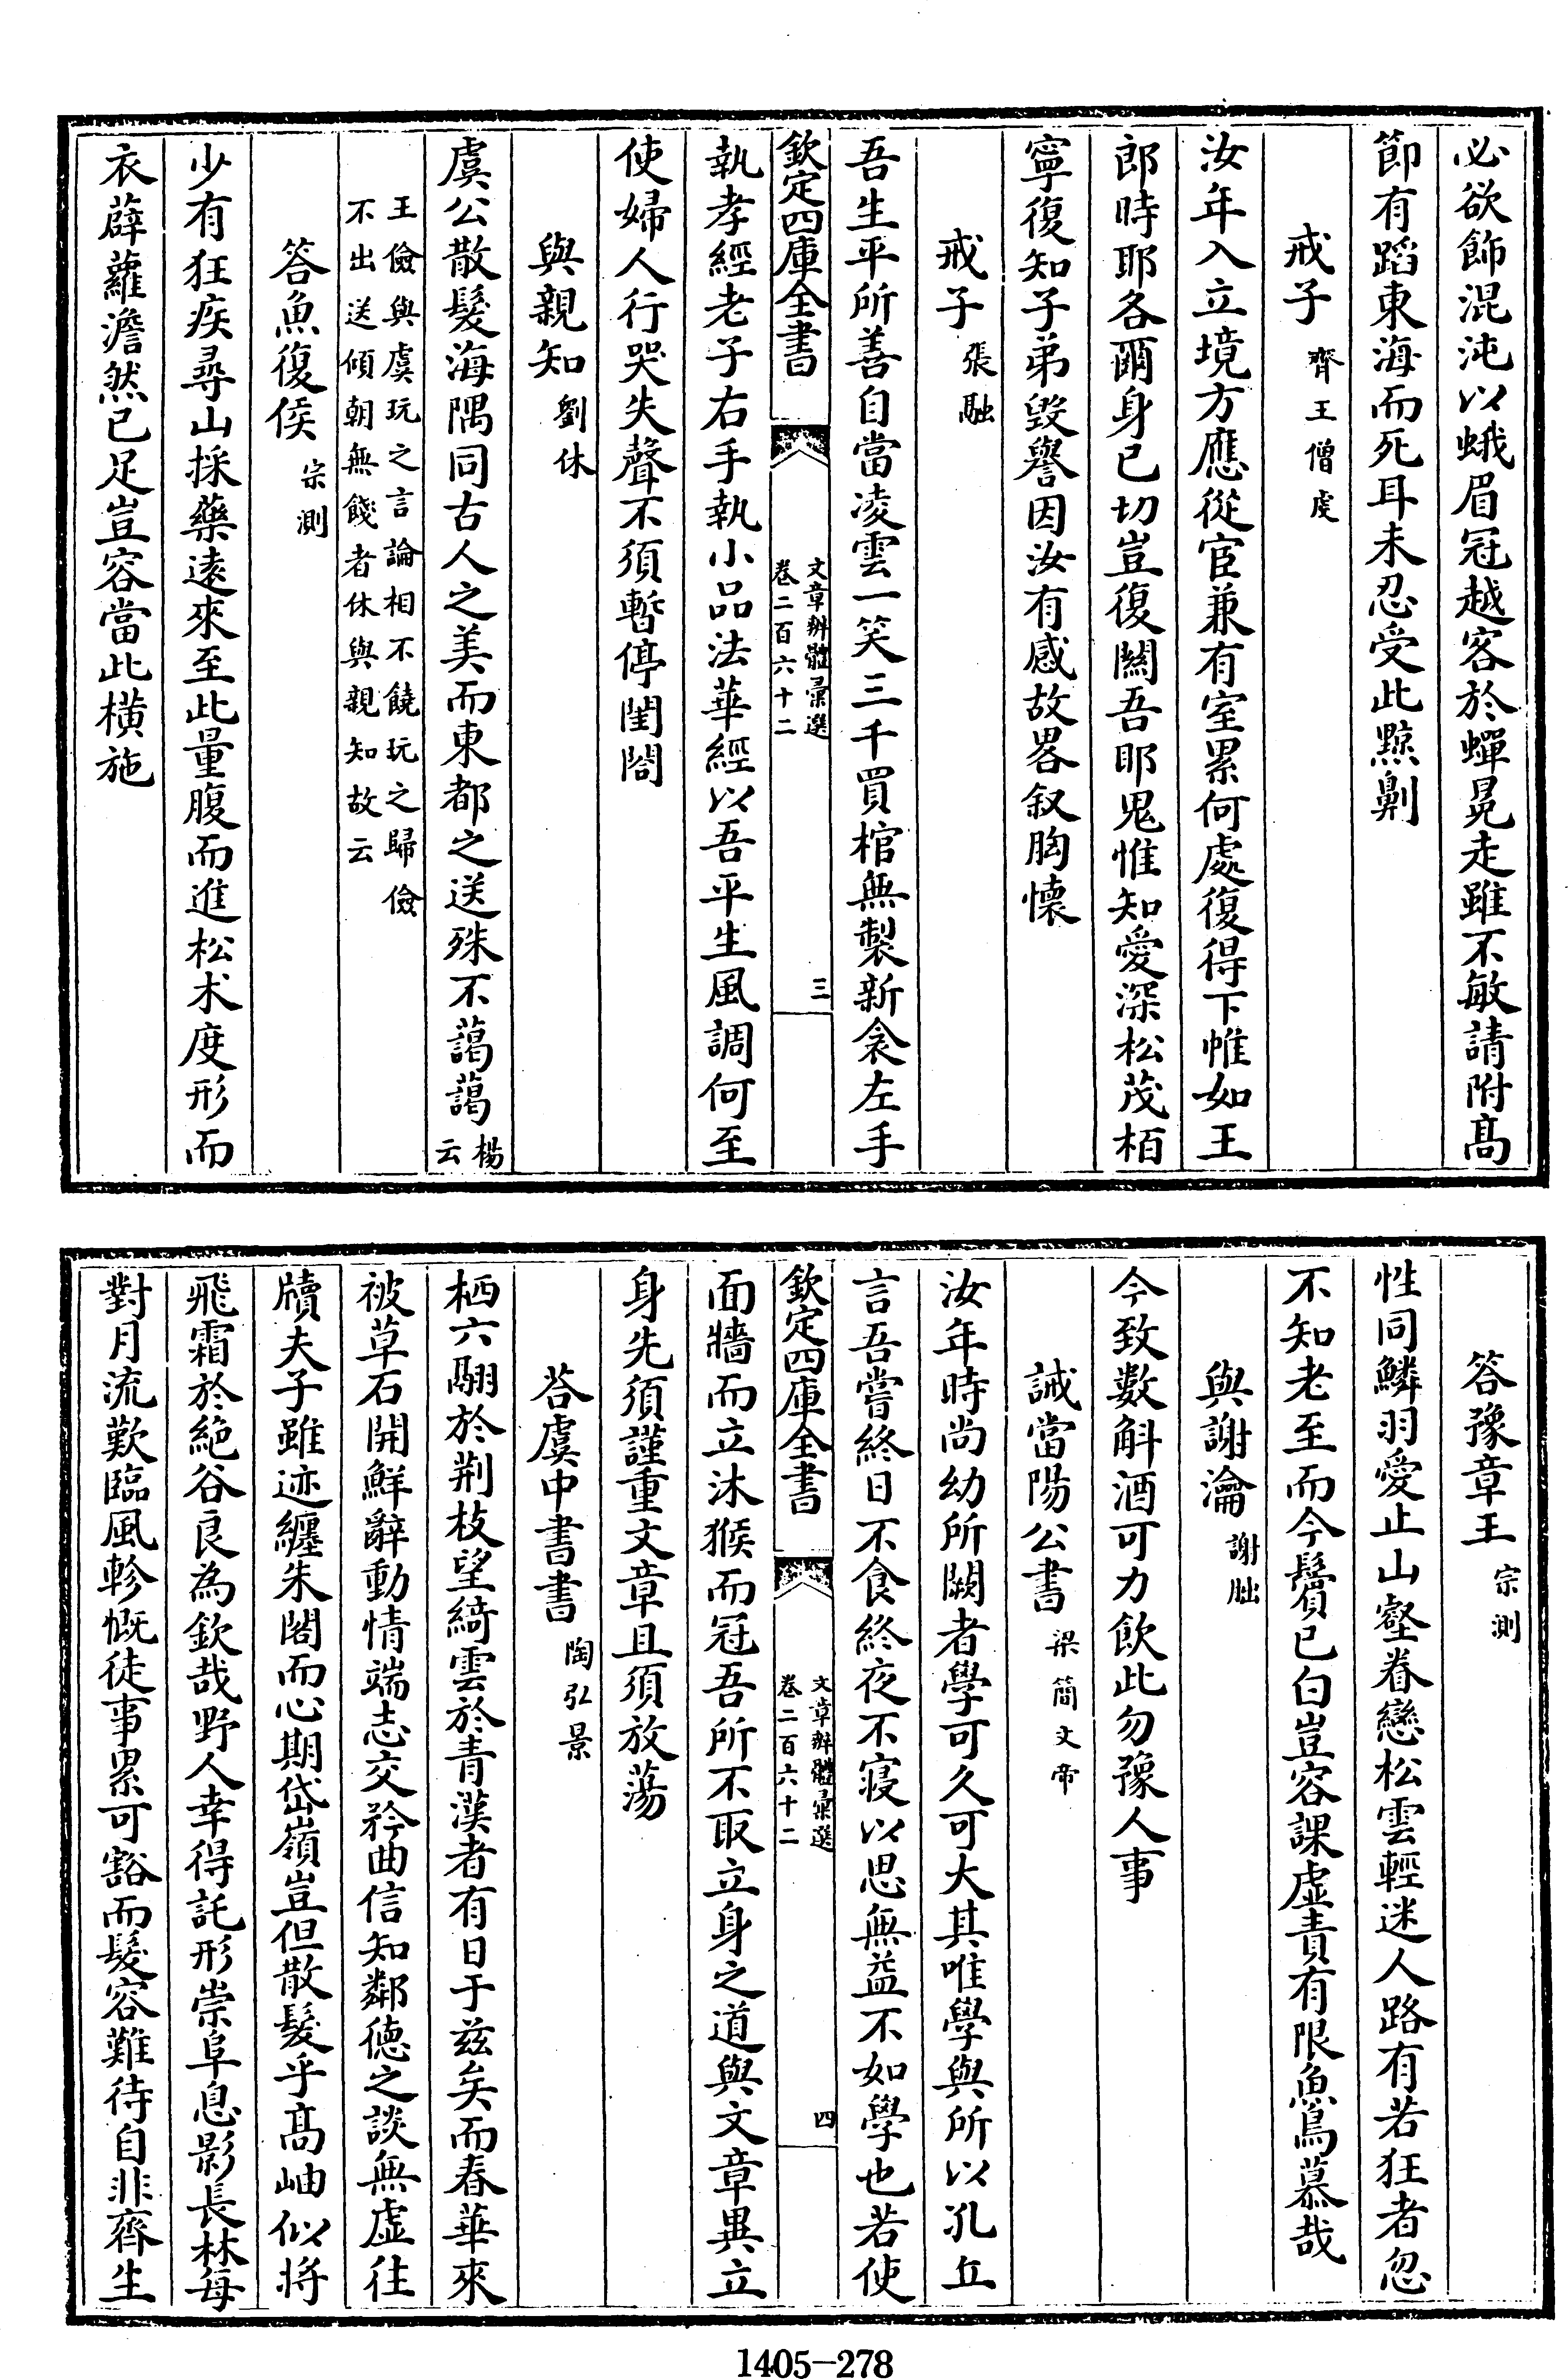 必欲飾混沌以蛾眉冠越客於蟬冕走雖不敏請附髙
節有蹈東海而死耳未忍受此黥劓
戒子 齊王僧䖍
汝年入立境方應從宦兼有室累何處復得下帷如王
郎時耶各爾身已切豈復闗吾耶鬼惟知愛深松茂栢
寧復知子弟毀譽因汝有感故畧叙胸懐
戒子 張融
吾生平所善自當凌雲一笑三千買棺無製新衾左手
欽定四庫全書
文章辨體彚選
卷二百六十二
三
執孝經老子右手執小品法華經以吾平生風調何至
使婦人行哭失聲不須暫停閨閤
與親知 劉休
虞公散髮海隅同古人之美而東都之送殊不藹藹 楊云
王儉與虞玩之言論相不饒玩之歸儉
不出送傾朝無餞者休與親知故云
答魚復侯 宗測
少有狂疾尋山採藥逺來至此量腹而進松术度形而
衣薜蘿澹然已足豈容當此橫施
答豫章王 宗測
性同鱗羽愛止山壑眷戀松雲輕迷人路有若狂者忽
不知老至而今鬢已白豈容課虚責有限魚鳥慕哉
與謝瀹 謝朏
今致數斛酒可力飲此勿豫人事
誡當陽公書 梁簡文帝
汝年時尚幼所闕者學可久可大其唯學與所以孔丘
言吾嘗終日不食終夜不寢以思無益不如學也若使
欽定四庫全書
文章辨體彚選
卷二百六十二
四
面牆而立沐猴而冠吾所不取立身之道與文章異立
身先須謹重文章且須放蕩
荅虞中書書 陶弘景
栖六翮於荆枝望綺雲於青漢者有日于兹矣而春華來
被草石開鮮辭動情端志交矜曲信知鄰徳之談無虚往
牘夫子雖迹纏朱閣而心期岱嶺豈但散髮乎髙岫似將
飛霜於絶谷良為欽哉野人幸得託形崇阜息影長林每
對月流歎臨風軫慨徒事累可豁而髮容難待自非齊生
1405—278